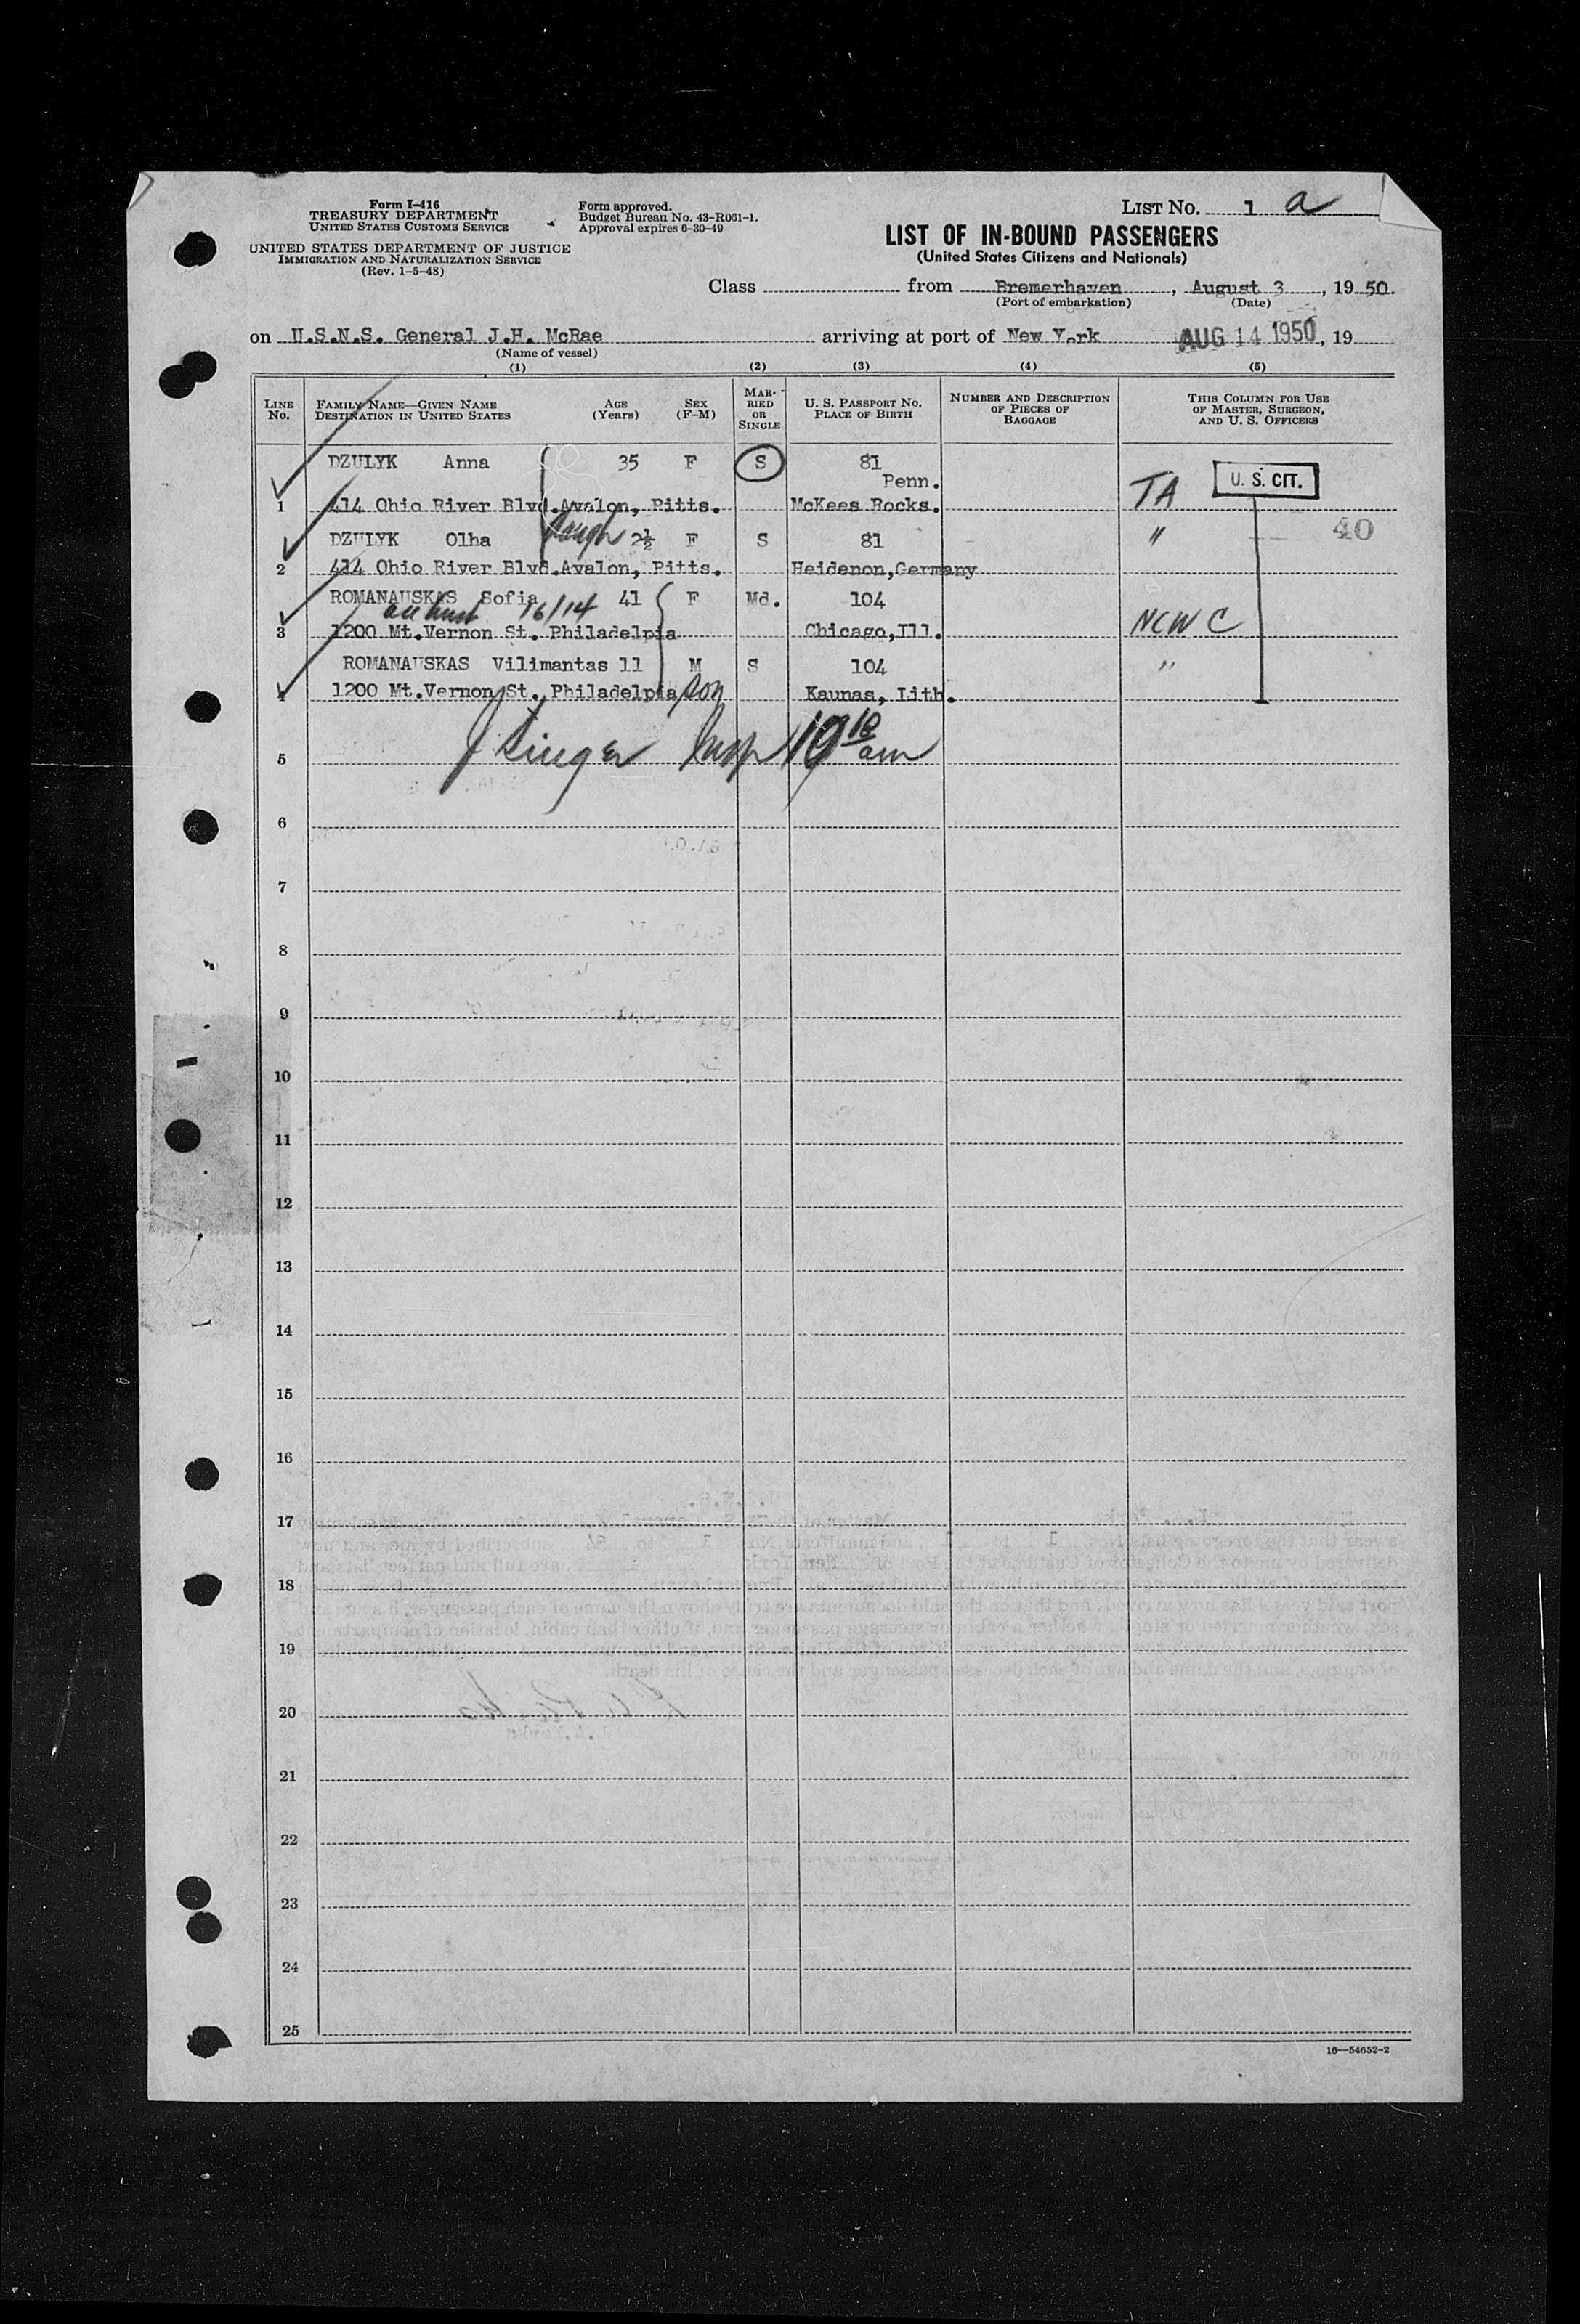 Form I-416
TREASURY DEPARTMENT
UNITED STATES CUSTOMS SERVICE
UNITED STATES DEPARTMENT OF JUSTICE
IMMIGRATION AND NATURALIZATION SERVICE
(Rev. 1-5-48)
Form approved.
Budget Bureau No. 43-R061-1.
Approval expires 6-30-49
LIST No. 1 a
LIST OF IN-BOUND PASSENGERS
(United States Citizens and Nationals)
Class from Bremerhaven, August 3, 19 50.
(Port of embarkation) (Date)
on U.S.N.S. General J.H. McRae arriving at port of New York AUG 14 1950, 19
(Name of vessel)
(1) (2) (3) (4) (5)
LINE No. FAMILY NAME—GIVEN NAME DESTINATION IN UNITED STATES AGE (Years) SEX (F-M) MARRIED OR SINGLE U. S. PASSPORT No. PLACE OF BIRTH NUMBER AND DESCRIPTION OF PIECES OF BAGGAGE THIS COLUMN FOR USE OF MASTER, SURGEON, AND U. S. OFFICERS
DZULYK Anna 35 F S 81
Penn. U. S. CIT.
1 414 Ohio River Blvd.Avalon, Pitts. McKees Rocks. TA
DZULYK Olha daugh 2½ F S 81 " 40
2 414 Ohio River Blvd.Avalon, Pitts. Heidenon,Germany
ROMANAUSKAS Sofia 41 F Md. 104
16/14
3 1200 Mt.Vernon St. Philadelpia Chicago,Ill. NCWC
ROMANAUSKAS Vilimantas 11 M S 104 "
4 1200 Mt.Vernon St. Philadelpia son Kaunas, Lith.
J Singer Insp 10 10 am
5
6
7
8
9
10
11
12
13
14
15
16
17
18
19
20
21
22
23
24
25
16—54652-2